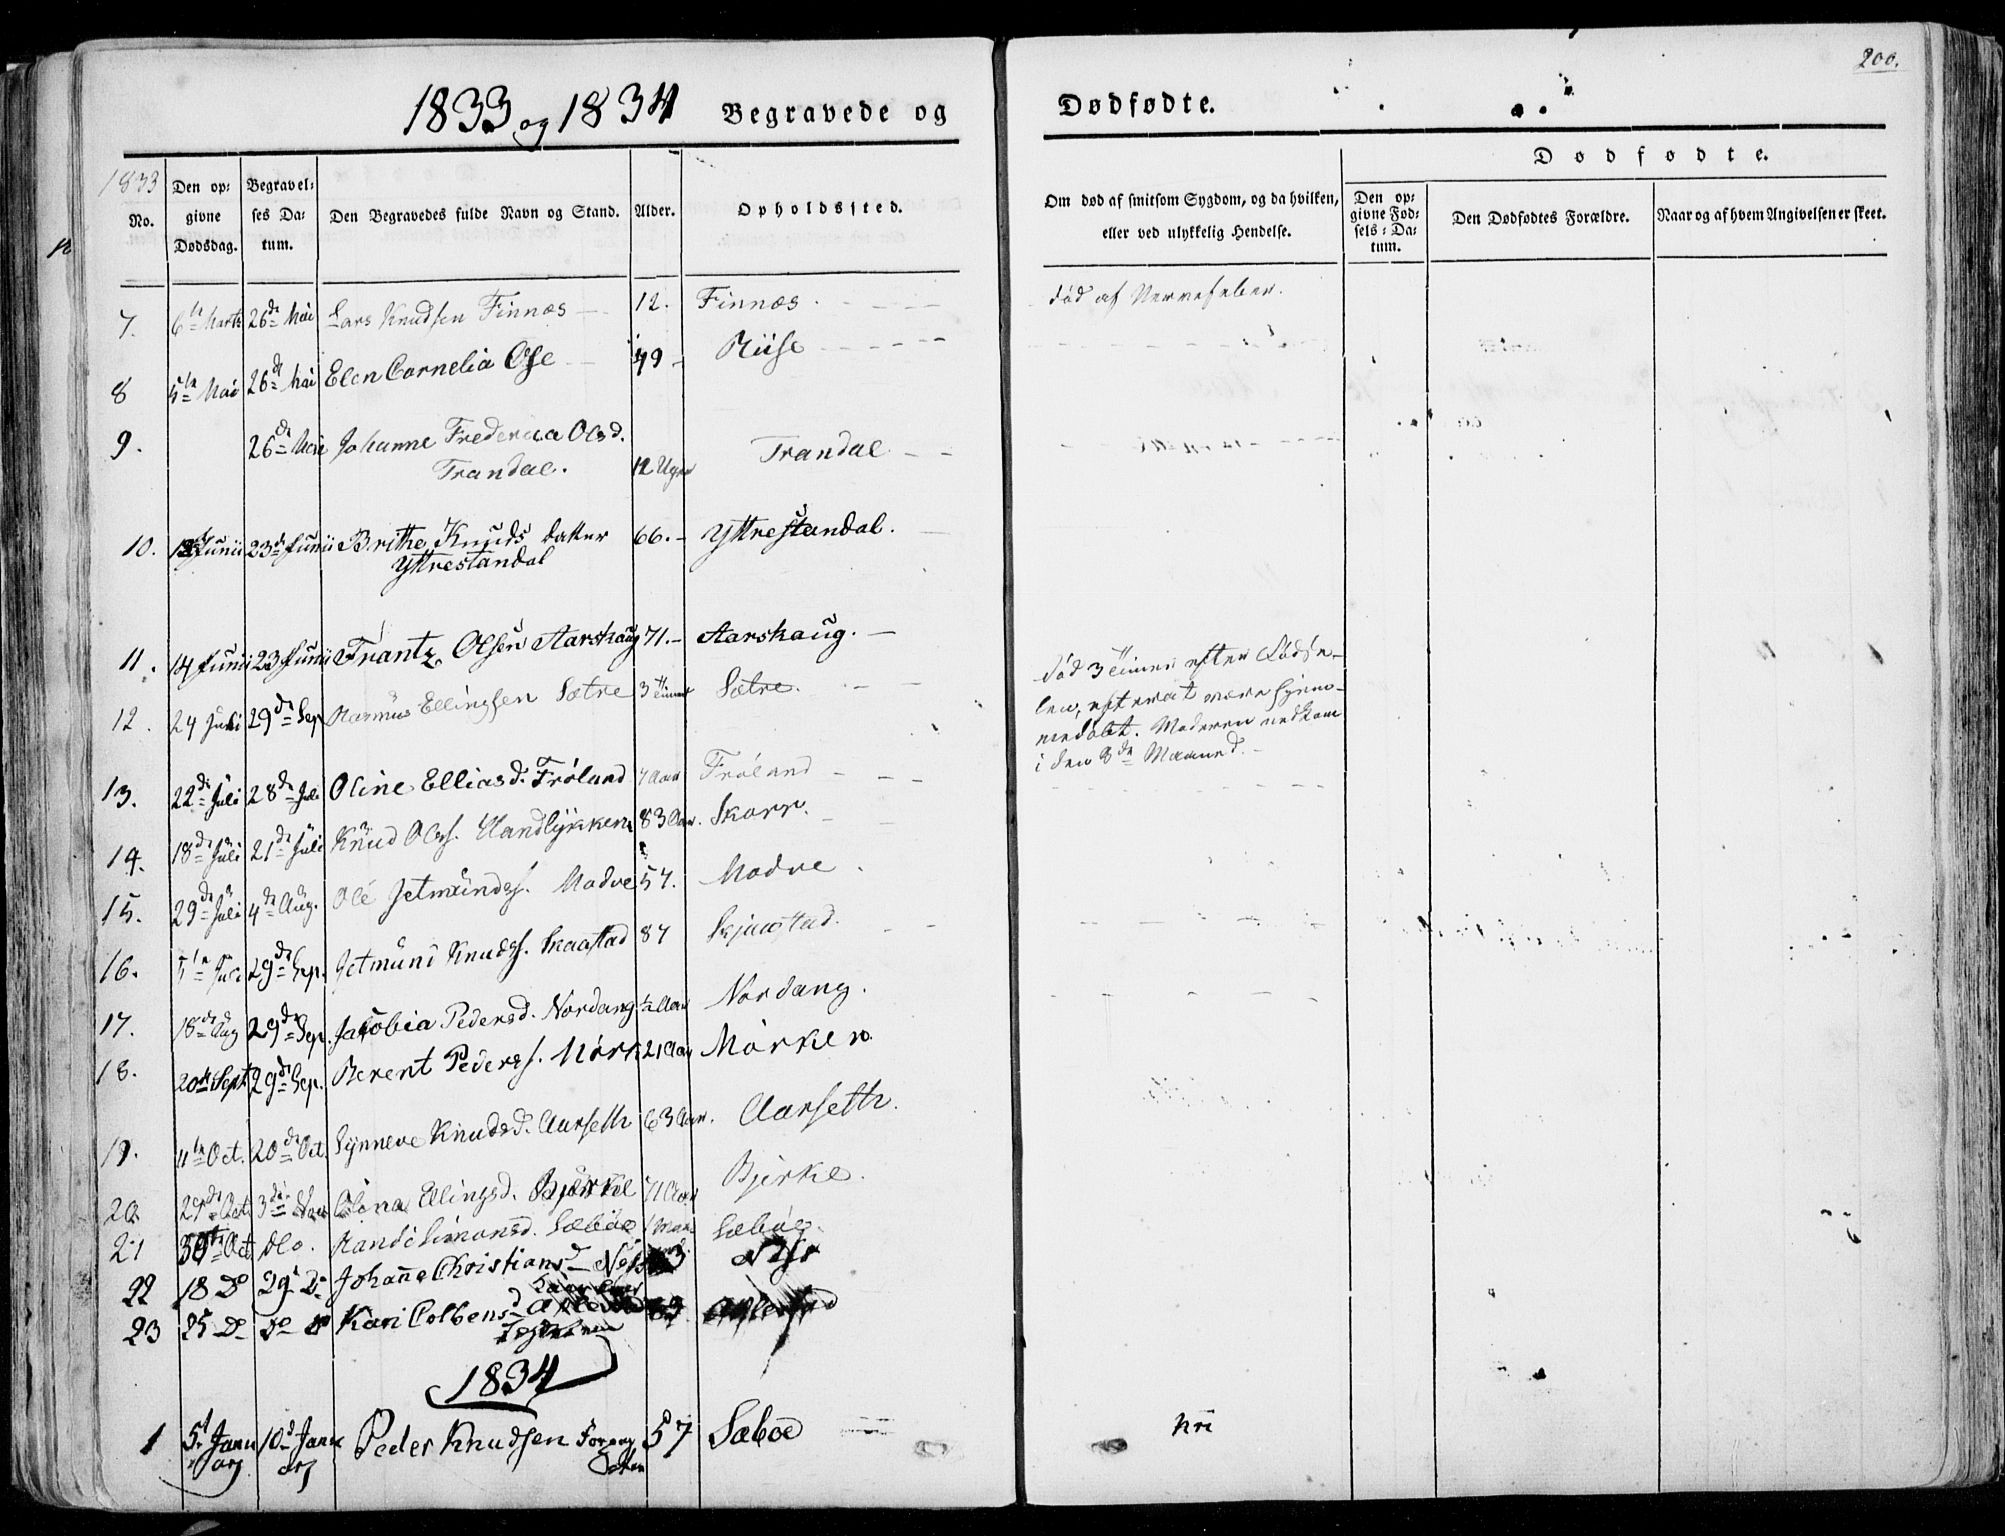 200.
1833 og 1834 Begravede og Dødfødte.
1833
No.
Den op-
givne
Dødsdag.
Begravel-
ses Da-
tum.
Den Begravedes fulde Navn og Stand.
Alder.
Opholdssted.
Om død af smitsom Sygdom, og da hvilken,
eller ved ulykkelig Hendelse.
Dødfødte.
Den op-
givne Fød-
sels-Da-
tum.
Den Dødfødtes Forældre.
Naar og af hvem Angivelsen er skeet.
7. 6te Marts 26de Mai Lars Knudsen Finnæs 12. Finnæs. død af Nervefeber.
8 5te Mai 26de Mai Elen Cornelia Ose 49 Riise
9. 26de Mai Johanne Frederica Olsd.
Trandal. 12 Uger Trandal
10. Junii 23de Junii Brithe Knuds datter 66. Yttrestandal.
Yttrestandal
11. 14 Junii 23 Junii Frantz Olsen Aarskaug 71. Aarskaug.
12. 24 Juli 29de Sep Rasmus Ellingsen Sætre 3 Timer Sætre.
død 3 Timer efter Fødse-
len, efterat være hjem-
medøbt. Moderen nedkom
i den 8de Maaned.
13. 22de Juli 28de Juli Oline Elliasd. Frøland 7 Aar Frøland
14. 18de Juli 21de Juli Knud Olss. 83 Aar. Skorr.
15. 29de Juli 4de Aug. Ole Jetmunds. Modve 57. Modve
16. 5te Juli 29de Sep. Jetmund Knuds. 87
17. 18de Aug 29de Sep. Jakobia Pedersd. Nordang ½ Aar Nordang.
18. 20de Sept 29de Sep. Berent Peders. Mørk 21 Aar Mørke
19. 11te Oct. 20de Oct. Synneve Knudsd. Aarseth 63 Aar. Aarseth.
20 29de Oct 3de Ellingsd. Bjerke 71 Aar Bjerke.
21 30te Oct Dto. Simonsd. Sæbøe Sæbøe.
22 18 De 29 De Johanne Christiansd
23 25 De De Kari Colbensd
1834
1 5t Janu 10d Janu Peder Knudsen 57 Sæbøe
arj arj